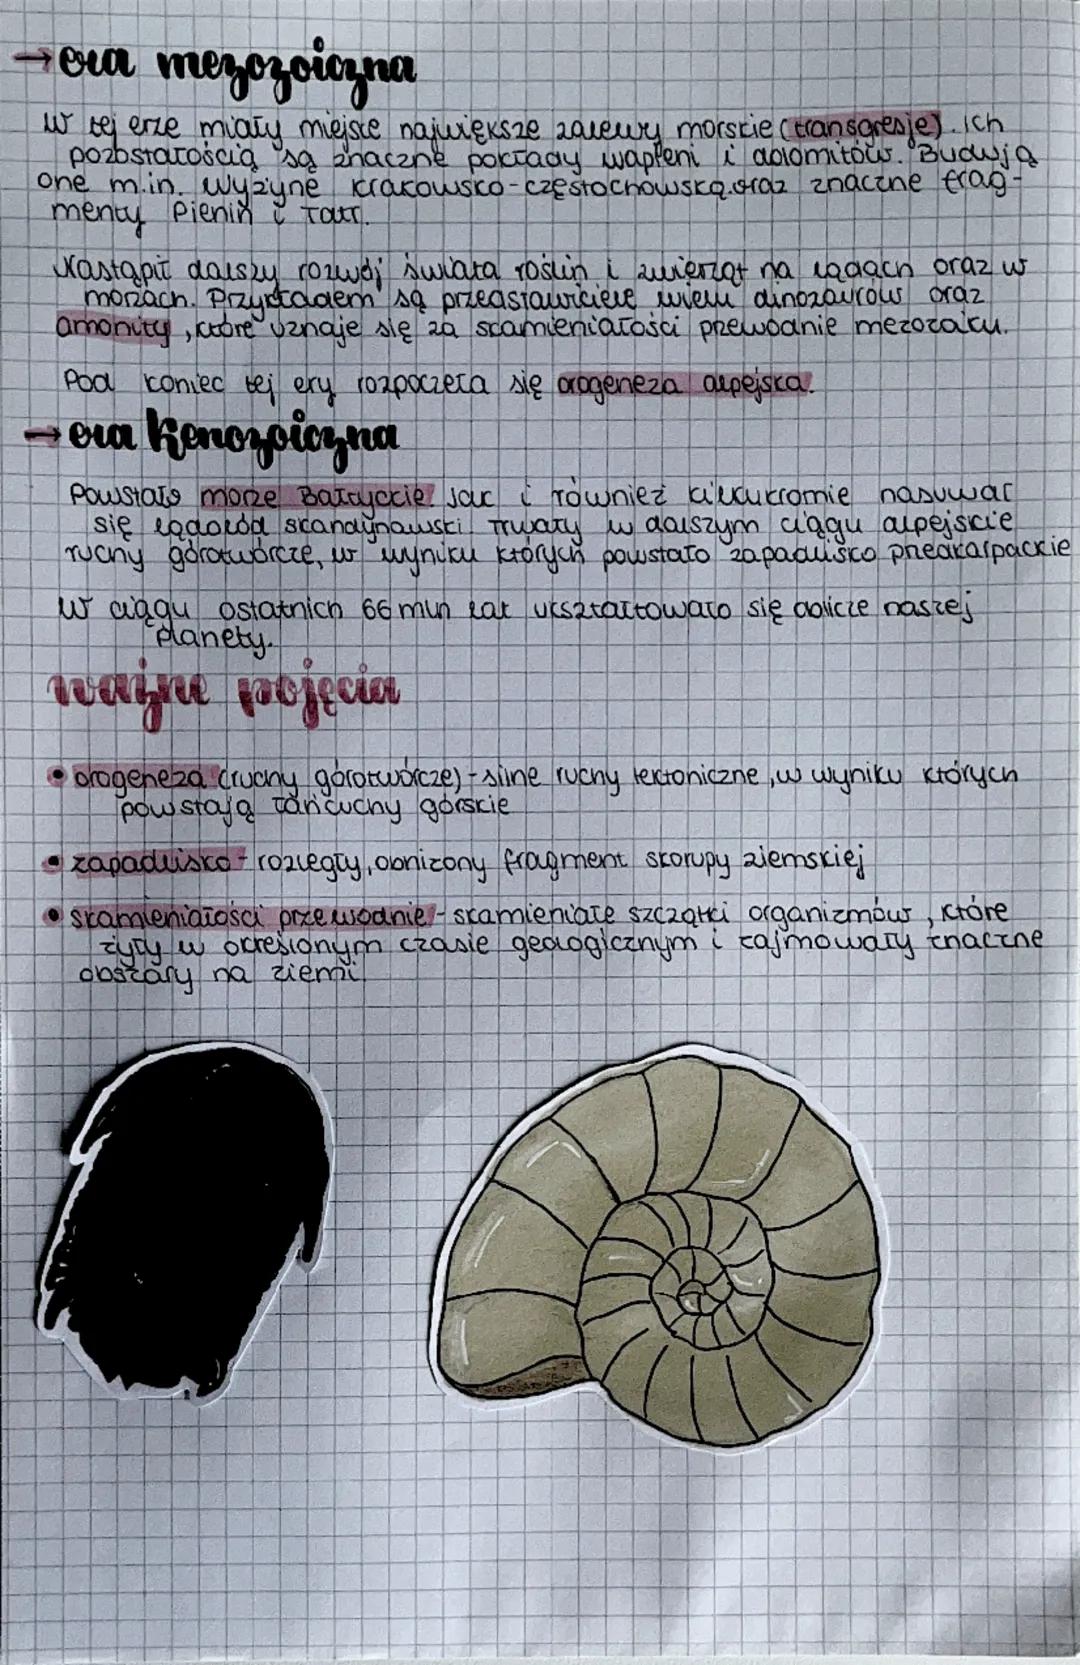 → era mezozoiczna
W tej erze miały miejsce największe zalewy morskie (transgresje). Ich
pozostałością są znaczne pokłady wapieni i dolomitów. Budują
one m.in. Wyżynę Krakowsko-Częstochowską oraz znaczne frag-
menty Pienin i Tatr.
Nastąpił dalszy rozwój świata roślin i zwierząt na lądach oraz w
morzach. Przykładem są przedstawiciele wielu dinozaurów oraz
amonity, które uznaje się za skamieniałości przewodnie mezozoiku.
Pod koniec tej ery rozpoczęła się orogeneza alpejska.
→ era kenozoiczna
Powstało morze Bałtyckie. Jak i również kilkukrotnie nasuwał
się lądolód skandynawski. Trwały w dalszym ciągu alpejskie
ruchy górotwórcze, w wyniku których powstało zapadlisko przedkarpackie
W ciągu ostatnich 66 mln lat ukształtowało się oblicze naszej
planety.
ważne pojęcia
• orogeneza (ruchy górotwórcze) - silne ruchy tektoniczne, w wyniku których
powstają łańcuchy górskie
• zapadlisko - rozległy, obniżony fragment skorupy ziemskiej
• skamieniałości przewodnie - skamieniałe szczątki organizmów, które
żyły w określonym czasie geologicznym i zajmowały znaczne
obszary na ziemi.